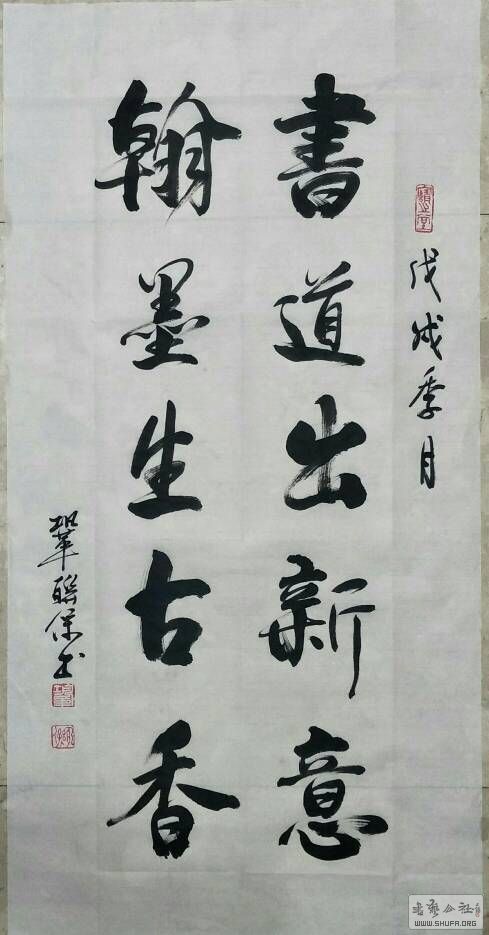 戊戌季月
書道出新意
翰墨生古香
鞏聯保书
书艺公社
WWW.SHUFA.ORG